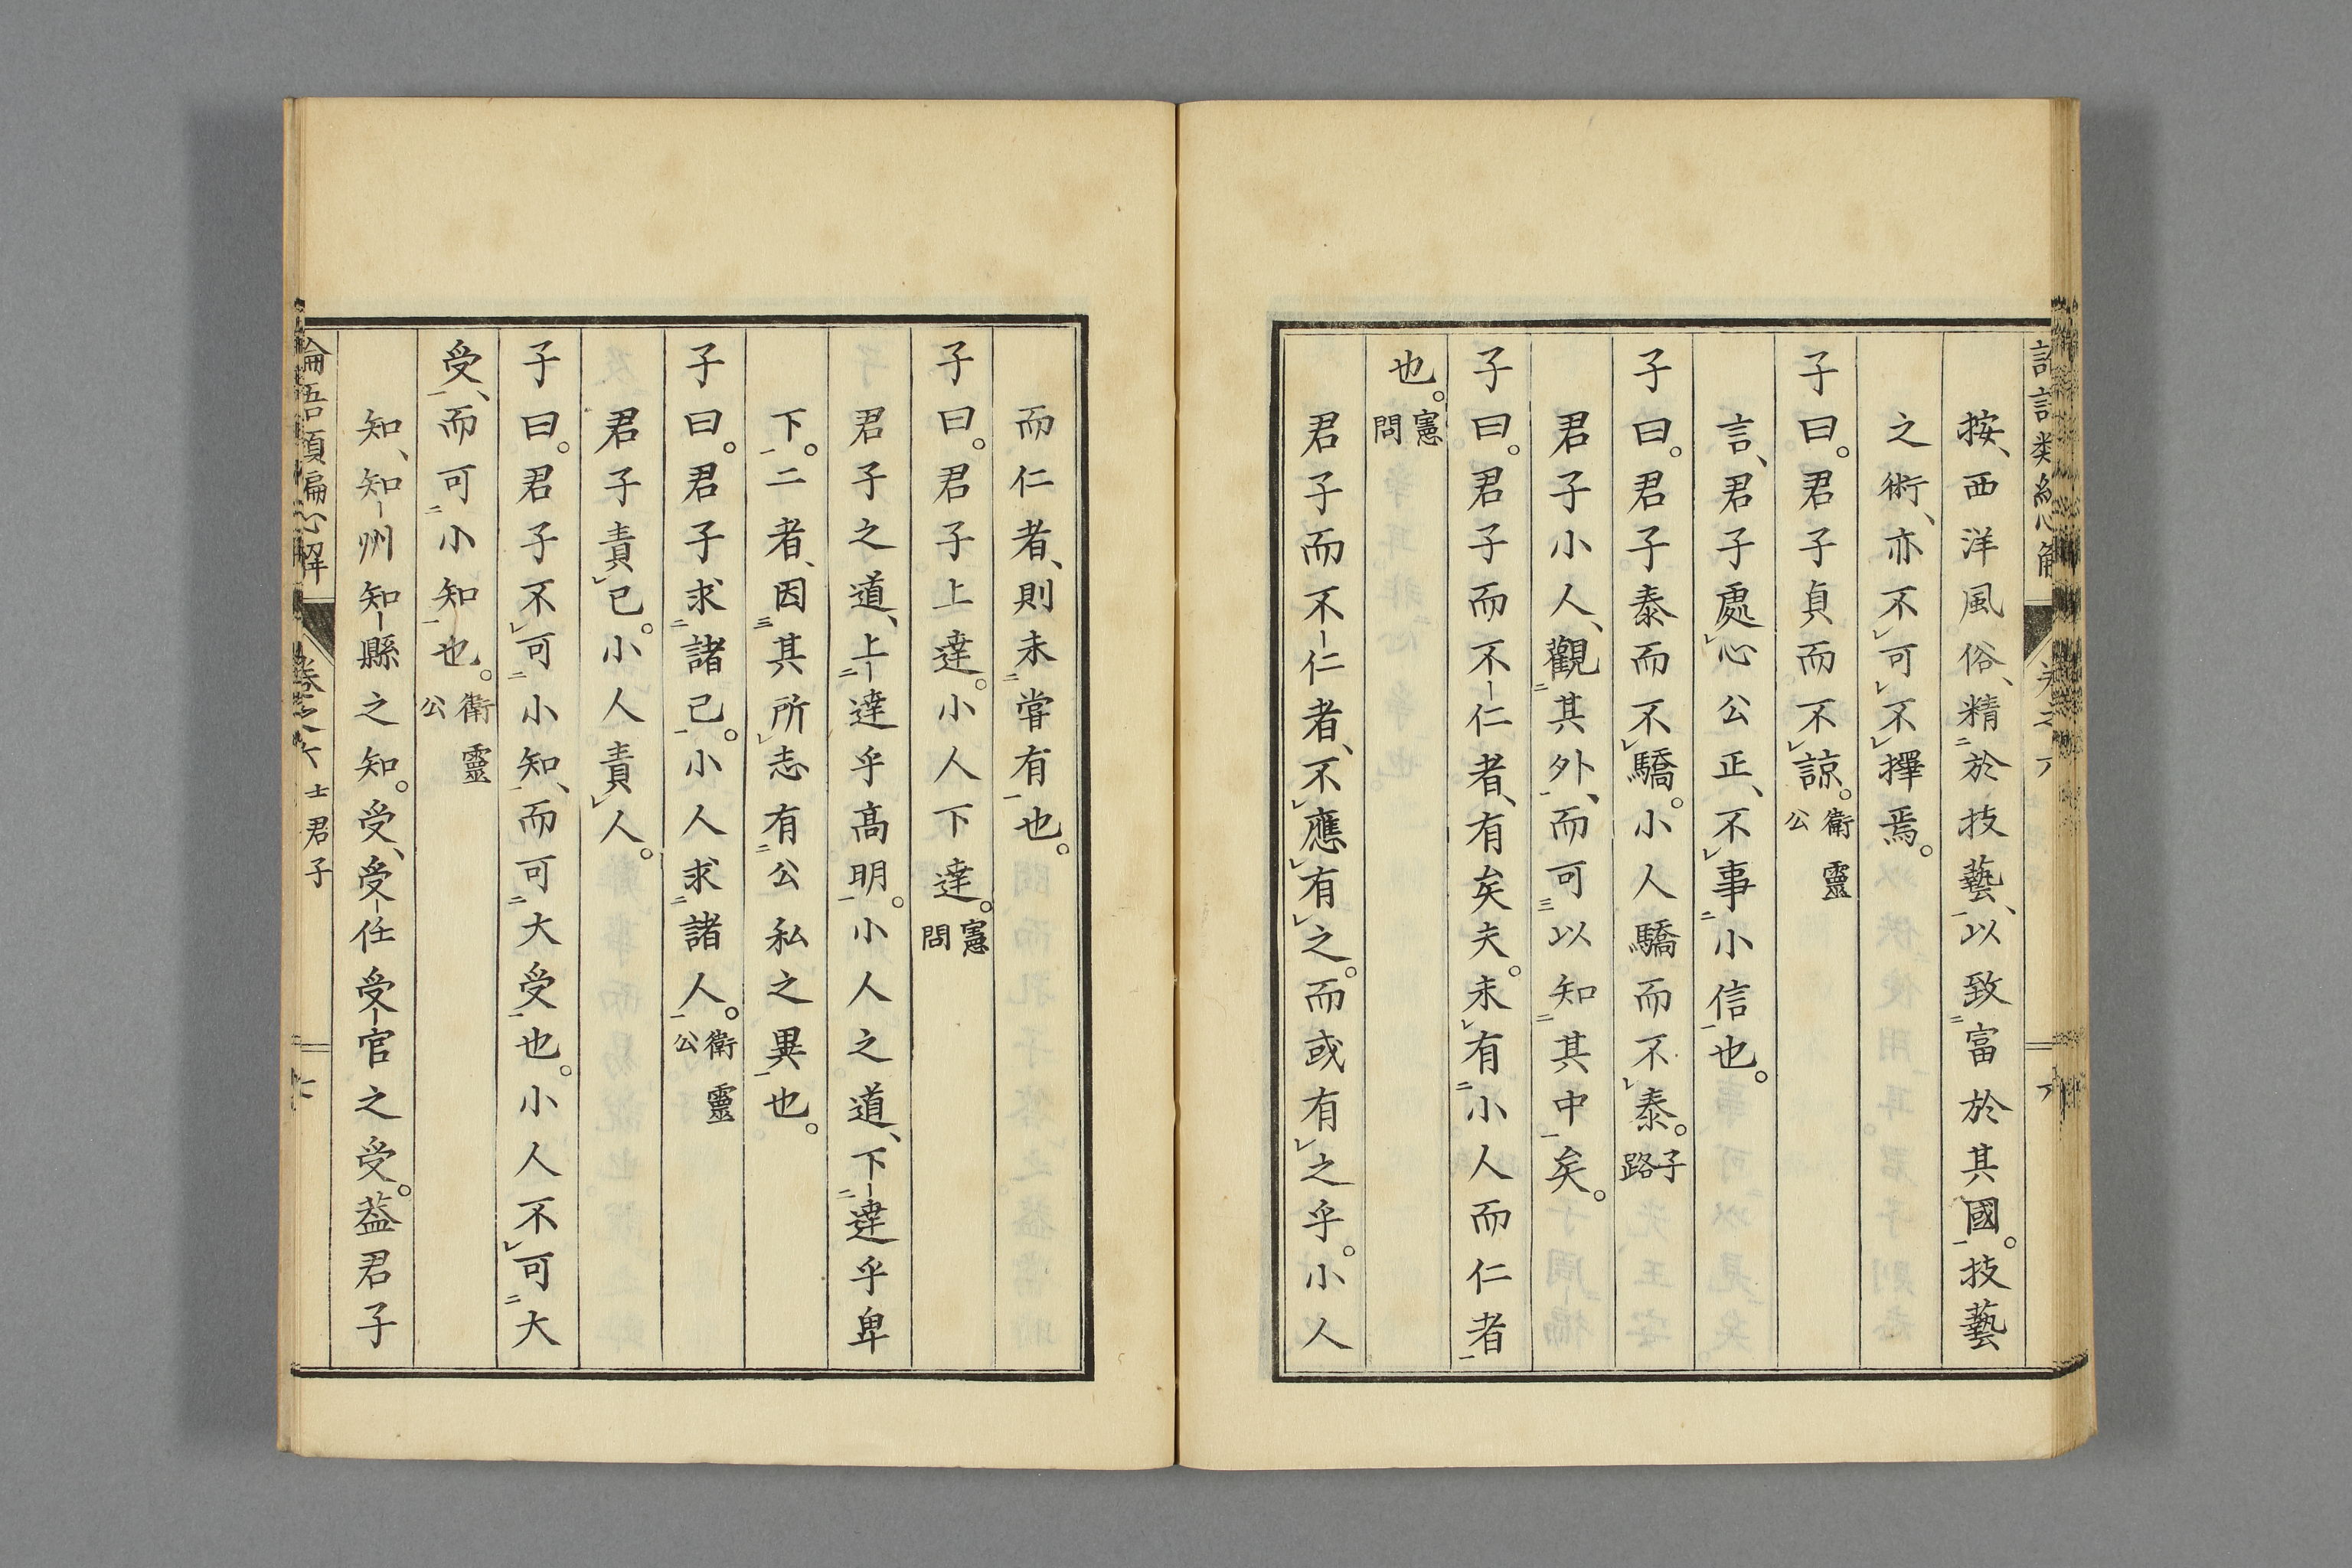 按、西洋風俗、精於技藝、以致富於其國。技藝
之術、亦不可不擇焉。
子曰。君子貞而不諒。衛靈公
言、君子處心公正、不事小信也。
子曰。君子泰而不驕。小人驕而不泰。子路
君子小人、觀其外、而可以知其中矣。
子曰。君子而不仁者、有矣夫。未有小人而仁者
也。憲問
君子而不仁者、不應有之。而或有之乎。小人
而仁者、則未嘗有也。
子曰。君子上達。小人下達。憲問
君子之道、上達乎高明。小人之道、下達乎卑
下。二者、因其所志有公私之異也。
子曰。君子求諸己。小人求諸人。衛靈公
君子責已。小人責人。
子曰。君子不可小知、而可大受也。小人不可大
受、而可小知也。衛靈公
知、知州知縣之知。受、受任受官之受。葢君子
士君子